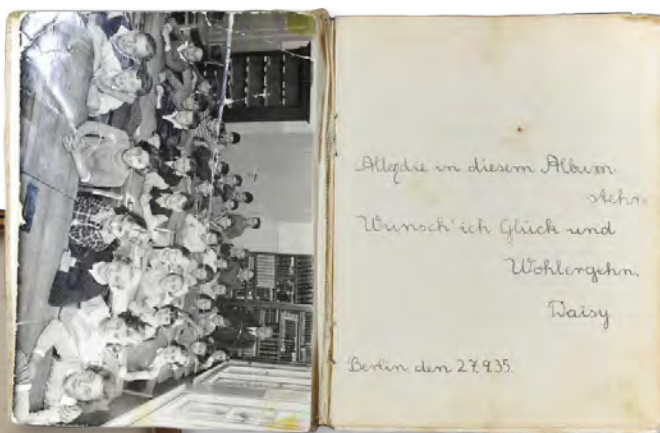 Alle, die in diesem Album
stehn
Wünsch' ich Glück und
Wohlergehn.
Daisy
Berlin, den 27.9.35.